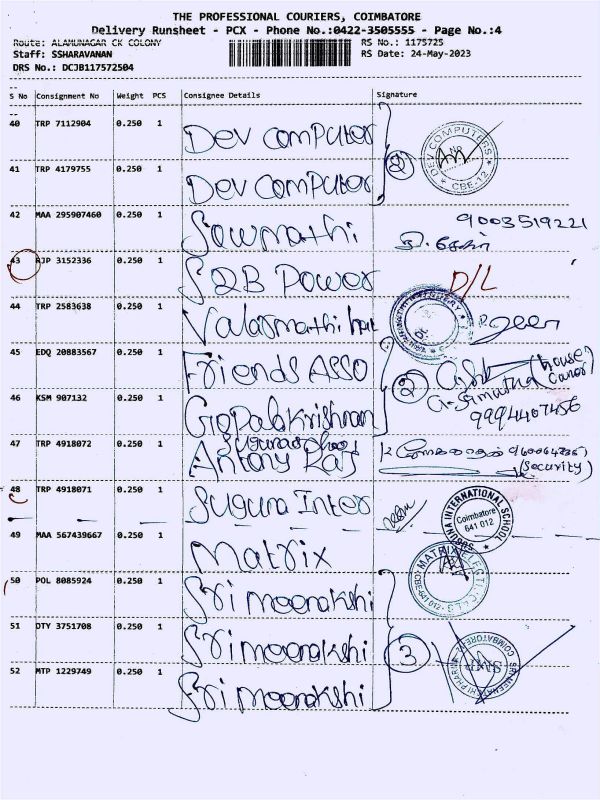 THE PROFESSIONAL COURIERS, COIMBATORE
Delivery Runsheet - PCX - Phone No.:0422-3505555 - Page No.:4
Route: ALAMUNAGAR CK COLONY RS No.: 1175725
Staff: SSHARAVANAN RS Date: 24-May-2023
DRS No.: DCJB117572504
S No Consignment No Weight PCS Consignee Details Signature
40 TRP 7112904 0.250 1 Dev computer
DEV COMPUTERS CBE-12
2
41 TRP 4179755 0.250 1 Dev computer
42 MAA 295907460 0.250 1 Sowmathi 9003519221
43 RJP 3152336 0.250 1 S2B Power D/L
44 TRP 2583638 0.250 1
45 EDQ 20883567 0.250 1 Friends ASSO
2 (house owner)
46 KSM 907132 0.250 1 Gopalakrishnan 9994407456
47 TRP 4918072 0.250 1 Antony Raj
(Security)
48 TRP 4918071 0.250 1 Suguna Inter
SUGUNA INTERNATIONAL SCHOOL Coimbatore 641 012
49 MAA 567439667 0.250 1 Matrix
50 POL 8085924 0.250 1 Sri meenakshi
51 DTY 3751708 0.250 1 Sri meenakshi 3
52 MTP 1229749 0.250 1 Sri meenakshi